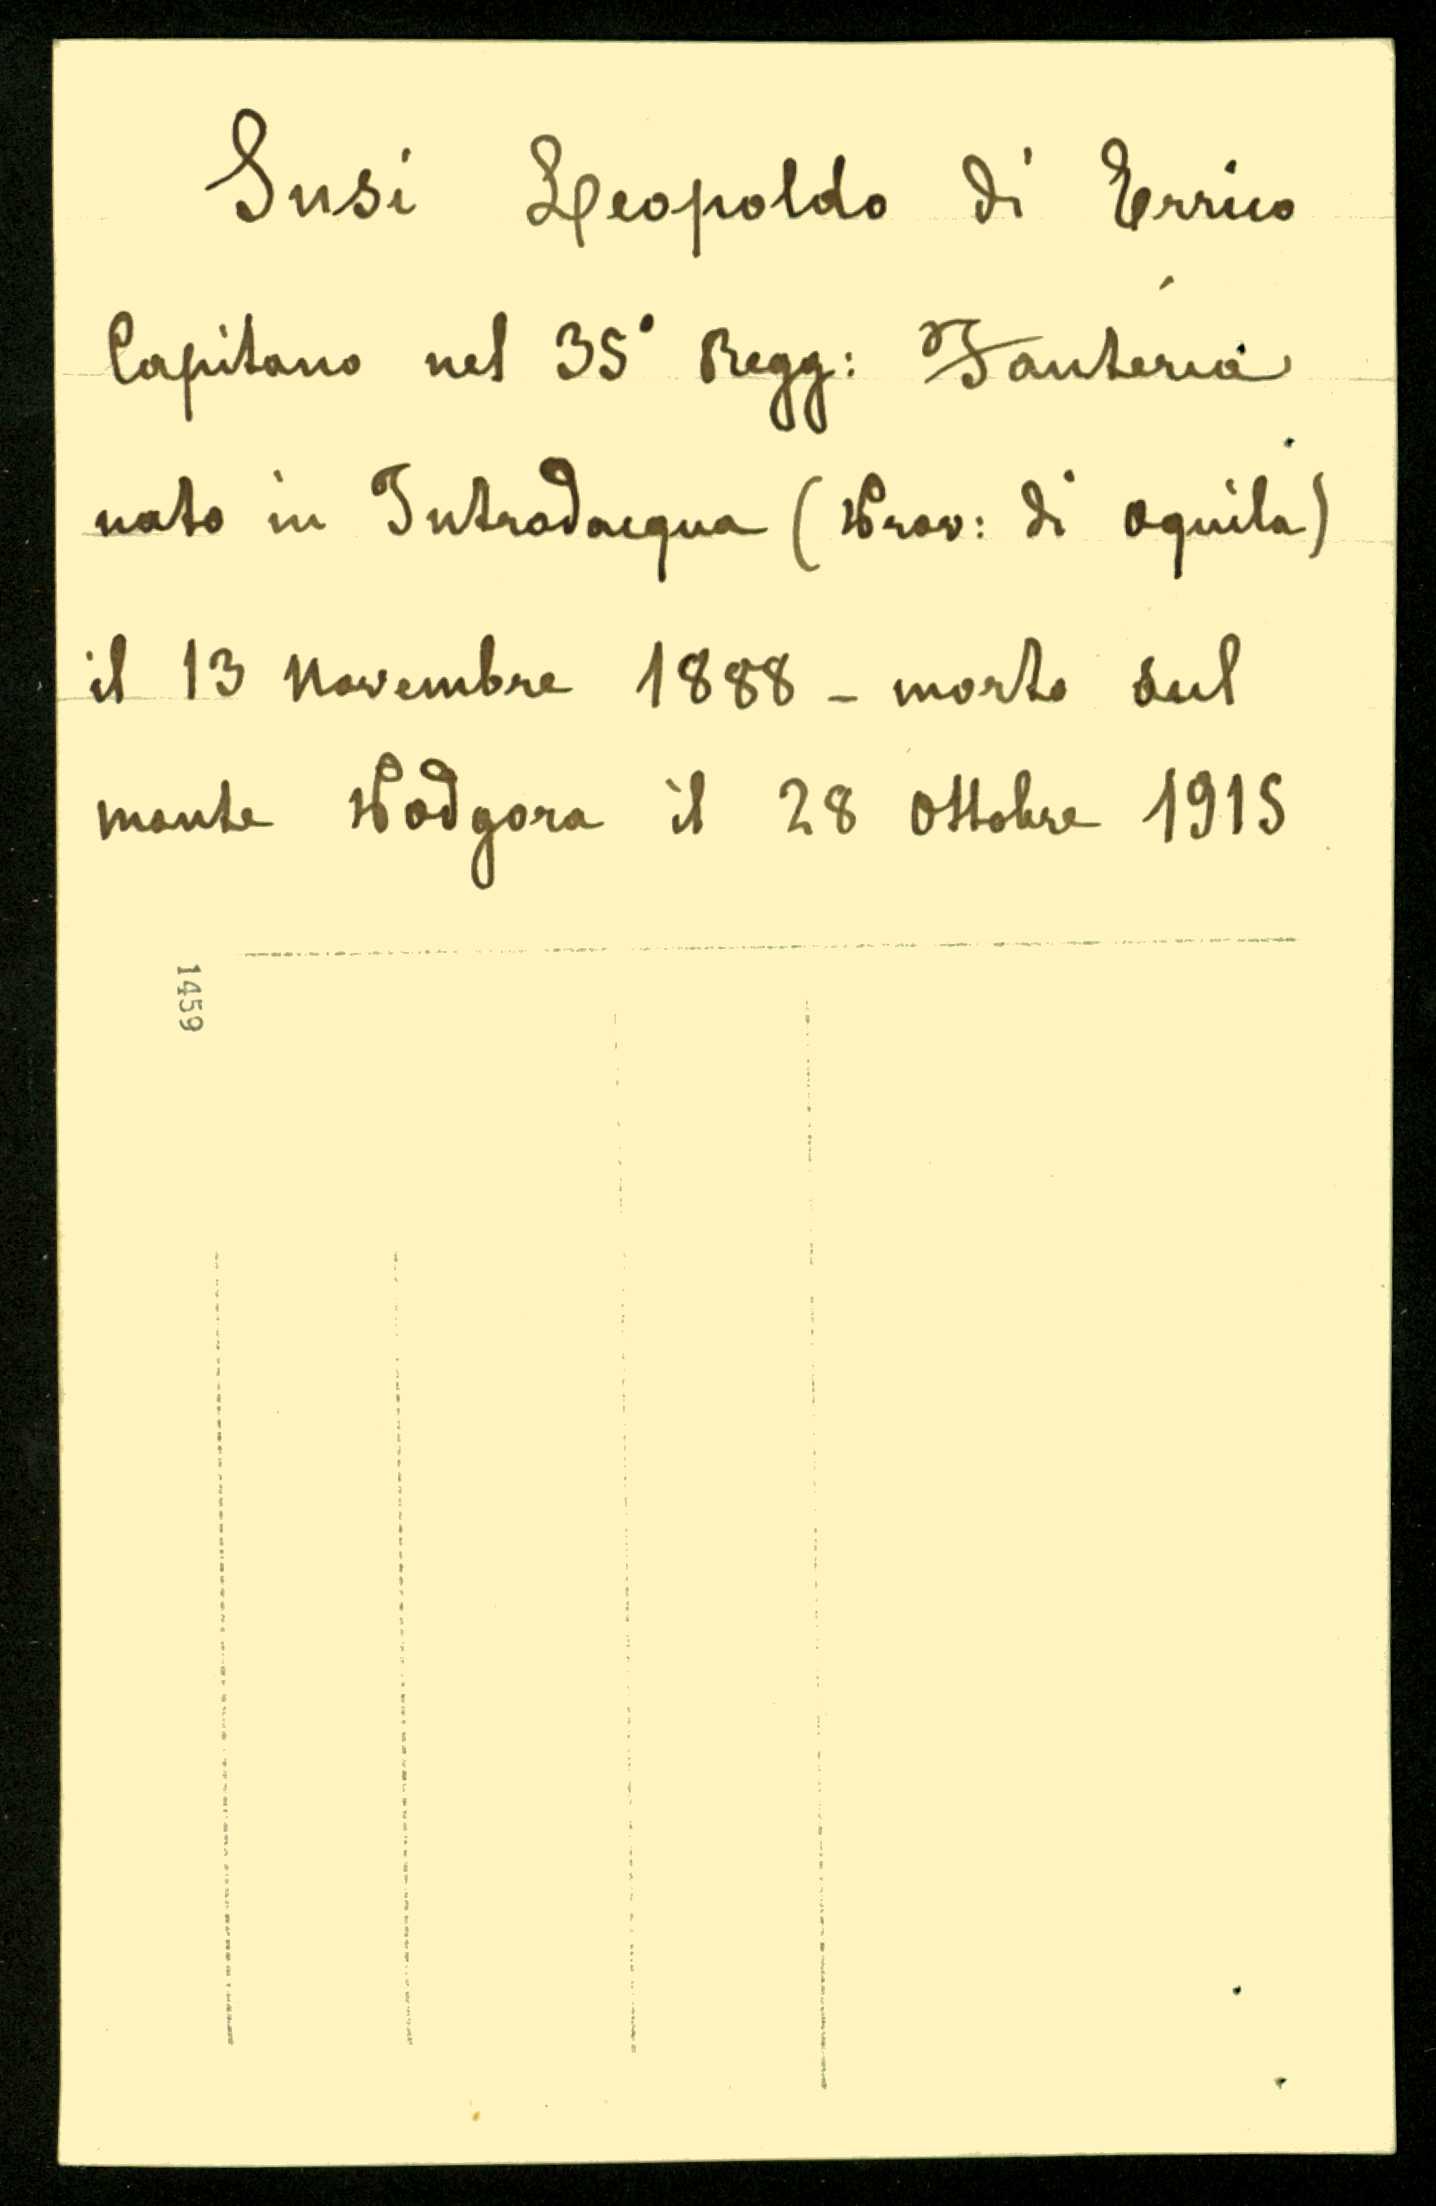 Susi Leopoldo di Errico
Capitano nel 35° Regg: Fanteria
nato in Introdacqua (Prov: di Aquila)
il 13 Novembre 1888 - morto sul
monte Podgora il 28 Ottobre 1915
1459